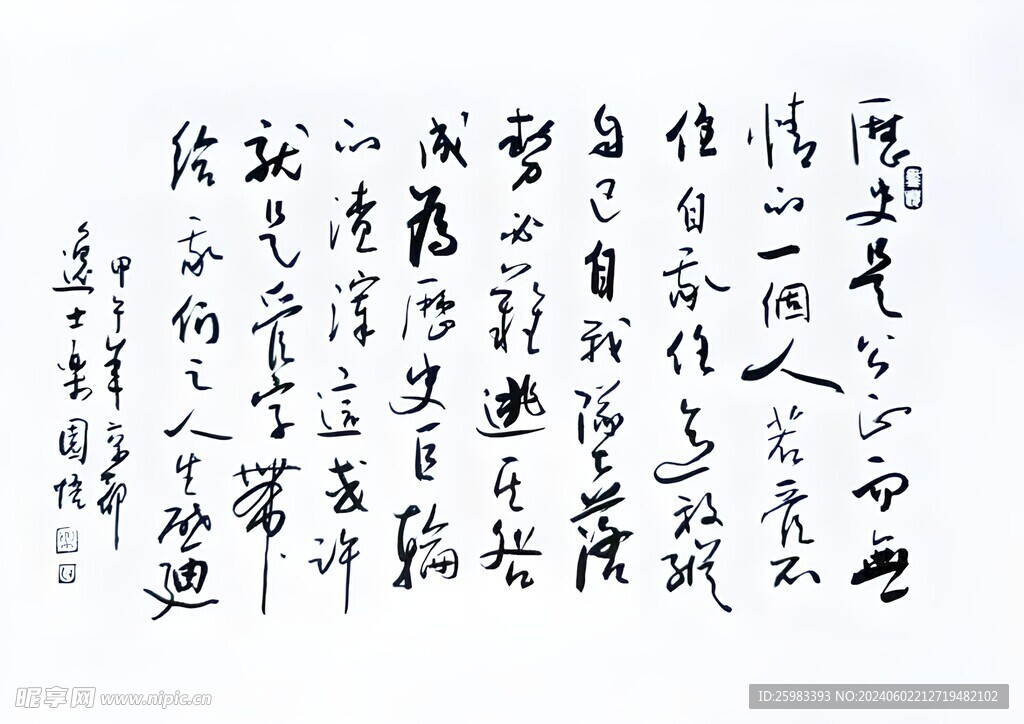 歷史是公正而無
情的一個人若管不
住自我任意放縱
自己自我墜落
勢必難逃其咎
成為歷史巨輪
的渣滓這或許
就是管字帶
給我們之人生啟迪
甲午年京都
逸士樂園悟
昵享网 www.nipic.cn
ID:25983393 NO:20240602212719482102